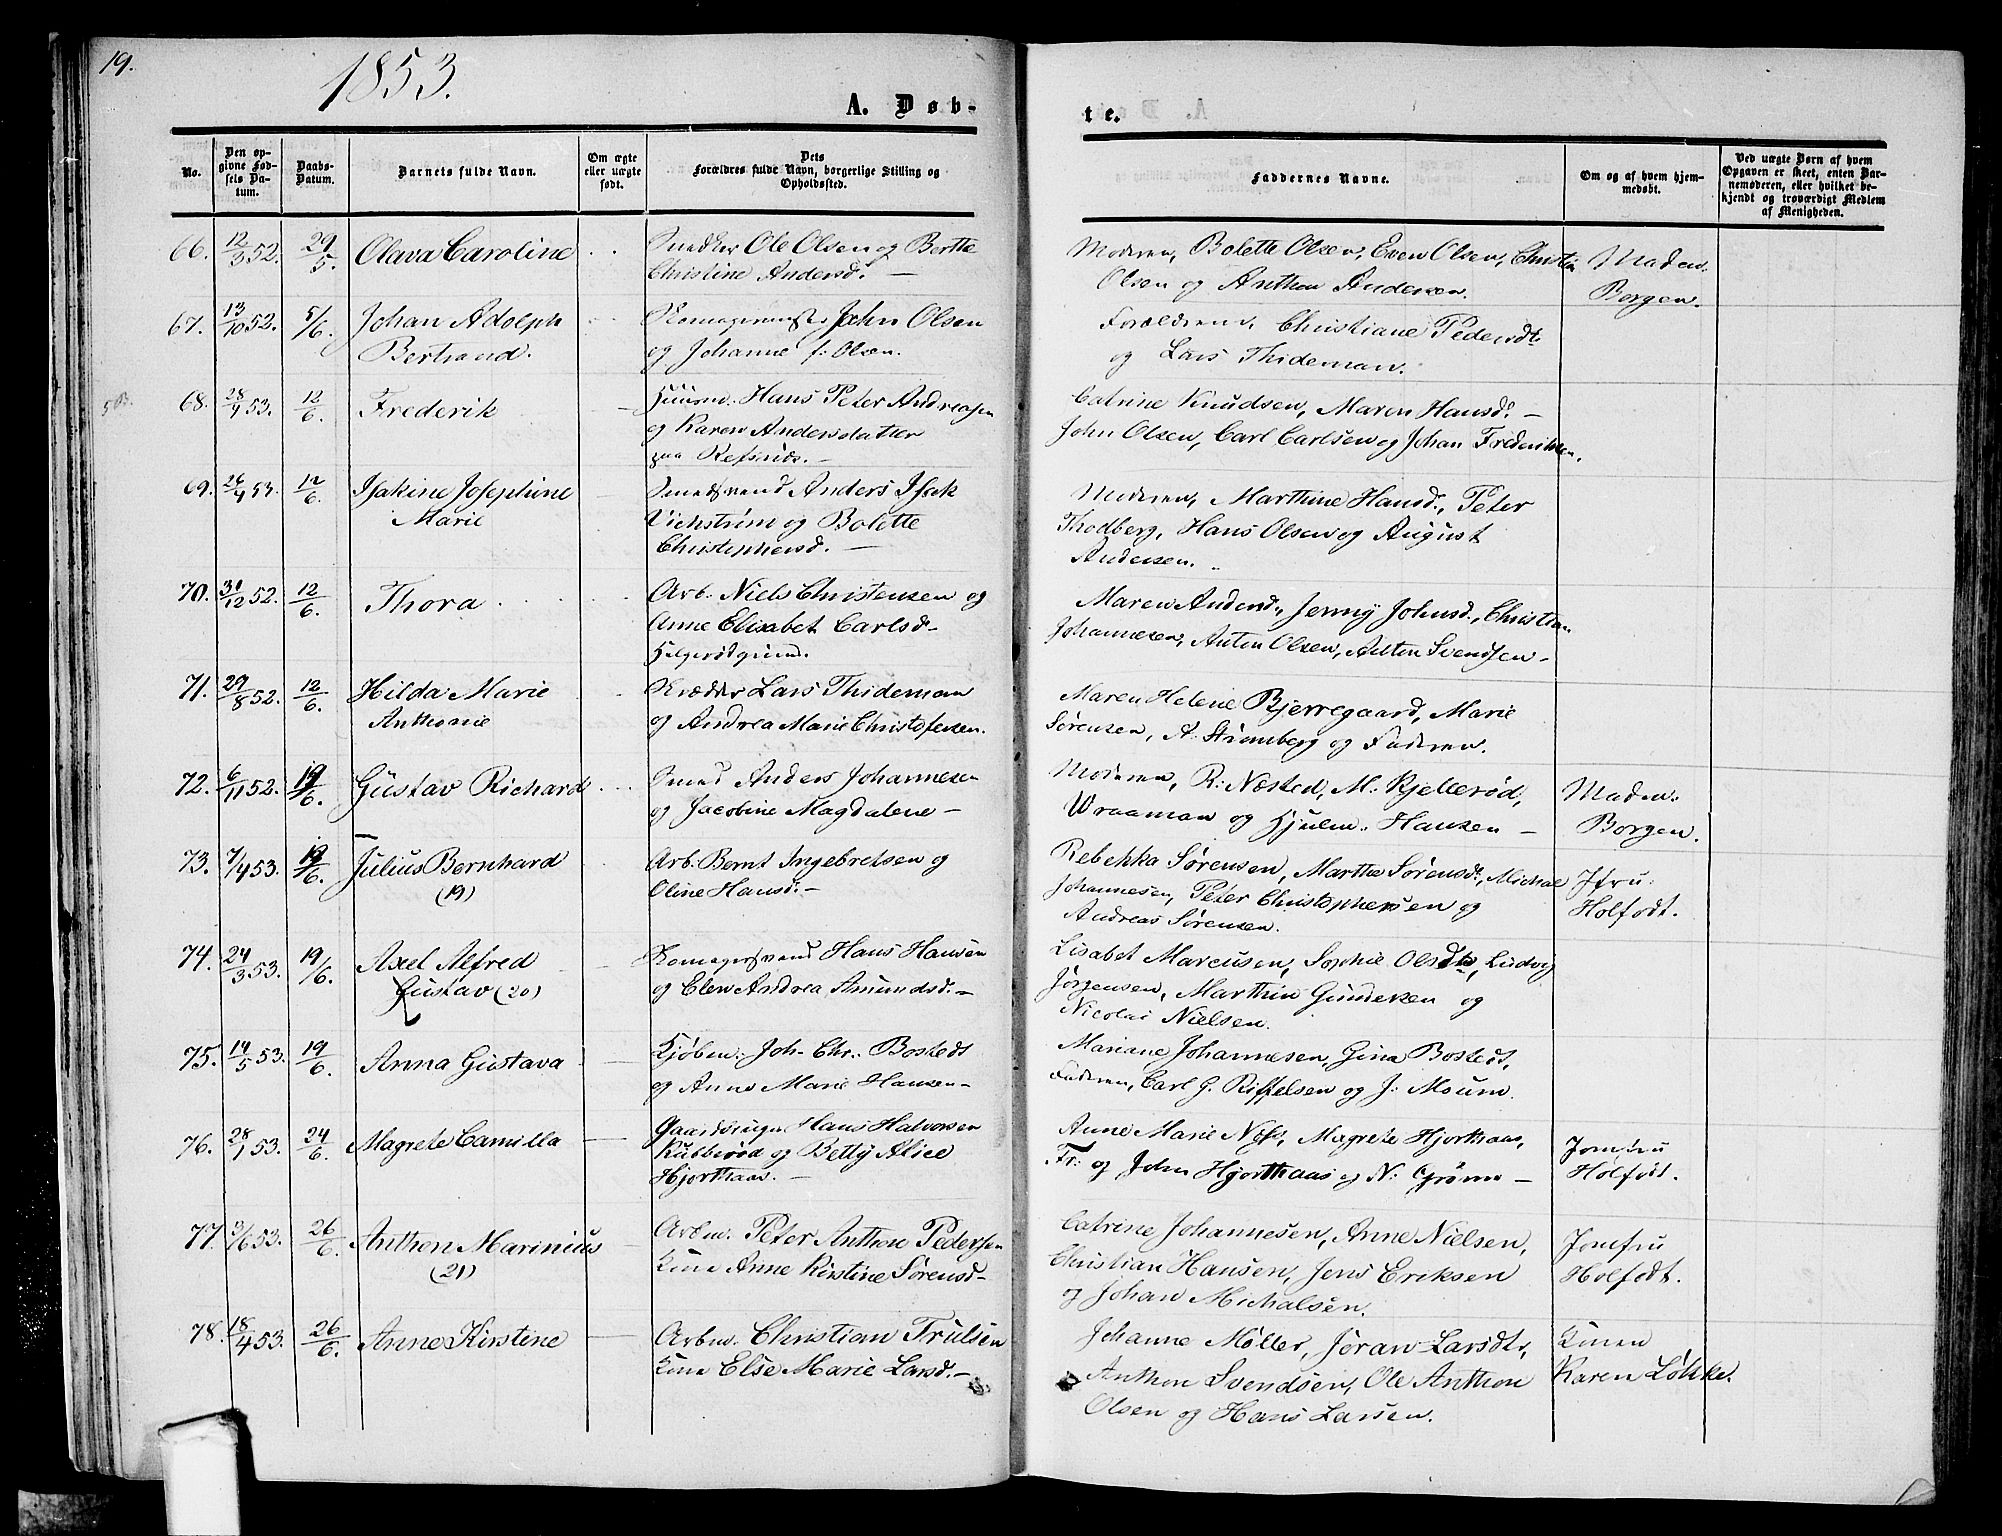 19.
1853.
A. Døb-
te.
No.
Den opgivne Fødsels Datum.
Daabs-Datum.
Barnets fulde Navn.
Om ægte eller uægte født.
Dets Forældres fulde Navn, borgerlige Stilling og Opholdssted.
Faddernes Navne.
Om og af hvem hjemmedøbt.
Ved uægte Børn af hvem Opgaven er skeet, enten Barnemoderen, eller hvilket bekjendt og troværdigt Medlem af Menigheden.
66. 12/3 52. 29/5. Olava Caroline Snedker Ole Olsen og Berthe Moderen, Bolette Olsen, Even Olsen, Christian Maden.
Christine Andersd. — Olsen og Anthon Andersen. Borgen.
67. 13/10 52. 5/6. Johan Adolph Skomagermester John Olsen Forældrene, Christiane Pedersdt.
Bertrand. og Johanne f. Olsen. og Lars Thideman.
68. 28/1 53. 12/6. Frederik — Huusm. Hans Peter Andreasen Catrine Knudsen, Maren Hansd. —
og Karen Andersdatter John Olsen, Carl Carlsen og Johan Frederiksen.
paa Refsnæs. —
69. 26/4 53. 12/6. Isakine Josephine — Smedsvend Anders Isak Moderen, Marthine Hansd., Peter
Marie Vichstrøm og Bolette Thodberg, Hans Olsen og August
Christophersd. — Andersen.
70. 31/12 52. 12/6. Thora Arb. Niels Christensen og Maren Andersd., Jenny Johnsd., Christian
Anne Elisabet Carlsd — Johannesen, Anton Olsen, Anton Svendsen —
Helgerødgrind.
71. 29/8 52. 12/6. Hilda Marie Skrædder Lars Thideman Maren Helene Bjerregaard, Marie
Anthonie og Andrea Marie Christofersen. Sørensen, A. Strømberg og Faderen.
72. 6/11 52. 19/6. Gustav Richard Smed Anders Johannesen Moderen, R. Næsted, M. Kjellerød, Maden.
og Jacobine Magdalene — Wraaman og Hjulm. Hansen — Borgen.
73. 7/4 53. 19/6. Julius Bernhard Arb. Bernt Ingebretsen og Rebekka Sørensen, Marthe Sørensd., Michal Jfru:
(19) Oline Hansd. — Johannesen, Peter Christophersen og Holfodt.
Andreas Sørensen.
74. 24/3 53. 19/6. Axel Alfred — Skomagersvend Hans Hansen Lisabet Marcusen, Sophie Olsdtr, Ludvig
Gustav (20) og Elen Andrea Amundsd. — Jørgensen, Marthin Gundersen og
Nicolai Nielsen.
75. 14/5 53. 19/6. Anna Gustava — Kjøbm. Joh. Chr. Bostedt Mariane Johannesen, Gina Bostedt,
og Anne Marie Hansen — Faderen, Carl G. Riffelsen og J. Moum.
76. 28/1 53. 24/6. Magrete Camilla — Gaardbruger Hans Halvorsen Anne Marie Næss, Magrete Hjorthaas, Jomfru
Kubberød og Betty Alice Fr: og John Hjorthaas og N. Grønn — Holfodt.
Hjorthaas. —
77. 3/6 53. 26/6. Anthon Marinius — Arbm. Peter Anthon Pedersen Catrine Johannesen, Anne Nielsen, Jomfru
(21) Kone Anne Kirstine Sørensd — Christian Hansen, Jens Eriksen Holfodt.
og Johan Michalsen.
78. 18/4 53. 26/6. Anne Kirstine — Arbm. Christian Trulsen Johanne Møller, Jøran Larsdtr, Konen
Kone Else Marie Larsd. — Anthon Svendsen, Ole Anthon Karen Løkke.
Olsen og Hans Larsen.